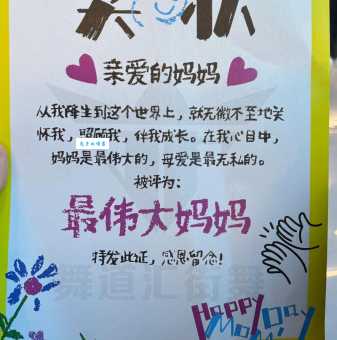 奖状
亲爱的妈妈
从我降生到这个世界上，就无微不至地关
怀我，照顾我，伴我成长。在我心目中，
妈妈是最伟大的，母爱是最无私的。
被评为：
最伟大妈妈
特发此证，感恩留念！
舞道汇街舞
Happy Day
MoM!